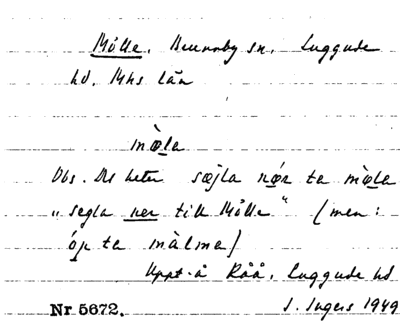 Mölle. Brunnby sn. Luggude
hd. Mhs län
mö̀la
Obs. Det heter sæjla nǿr ta mö̀la
"segla ner till Mölle" (men:
óp ta màlma)
Uppt. å Råå, Luggude hd
Nr 5672. J. Ingers 1949